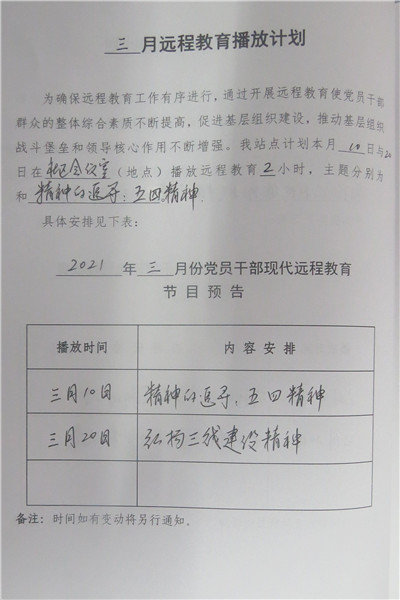 三 月远程教育播放计划
为确保远程教育工作有序进行，通过开展远程教育使党员干部
群众的整体综合素质不断提高，促进基层组织建设，推动基层组织
战斗堡垒和领导核心作用不断增强。我站点计划本月 10 日与20
日在 会议室 （地点）播放远程教育 2 小时，主题分别为
和 精神的追寻：五四精神.
具体安排见下表：
2021 年 三 月份党员干部现代远程教育
节目预告
播放时间 内容安排
三月10日 精神的追寻：五四精神
三月20日 弘扬三线建设精神
备注：时间如有变动将另行通知。